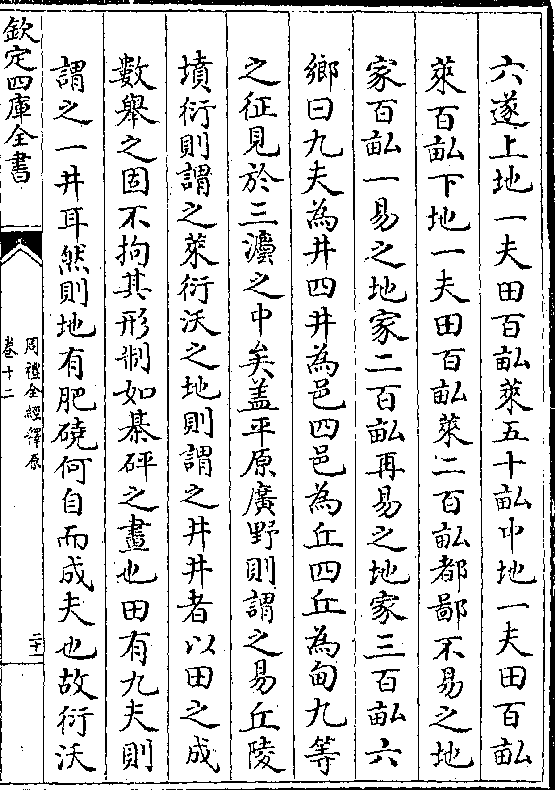 六遂上地一夫田百畆萊五十畆中地一夫田百畆
萊百畆下地一夫田百畆萊二百畆都鄙不易之地
家百畆一易之地家二百畆再易之地家三百畆六
鄉曰九夫為井四井為邑四邑為丘四丘為甸九等
之征見於三壤之中矣盖平原廣野則謂之易丘陵
墳衍則謂之萊衍沃之地則謂之井井者以田之成
數舉之固不拘其形制如棊砰之畫也田有九夫則
謂之一井耳然則地有肥磽何自而成夫也故衍沃
欽定四庫全書
周禮全經釋原
卷十二
二十一